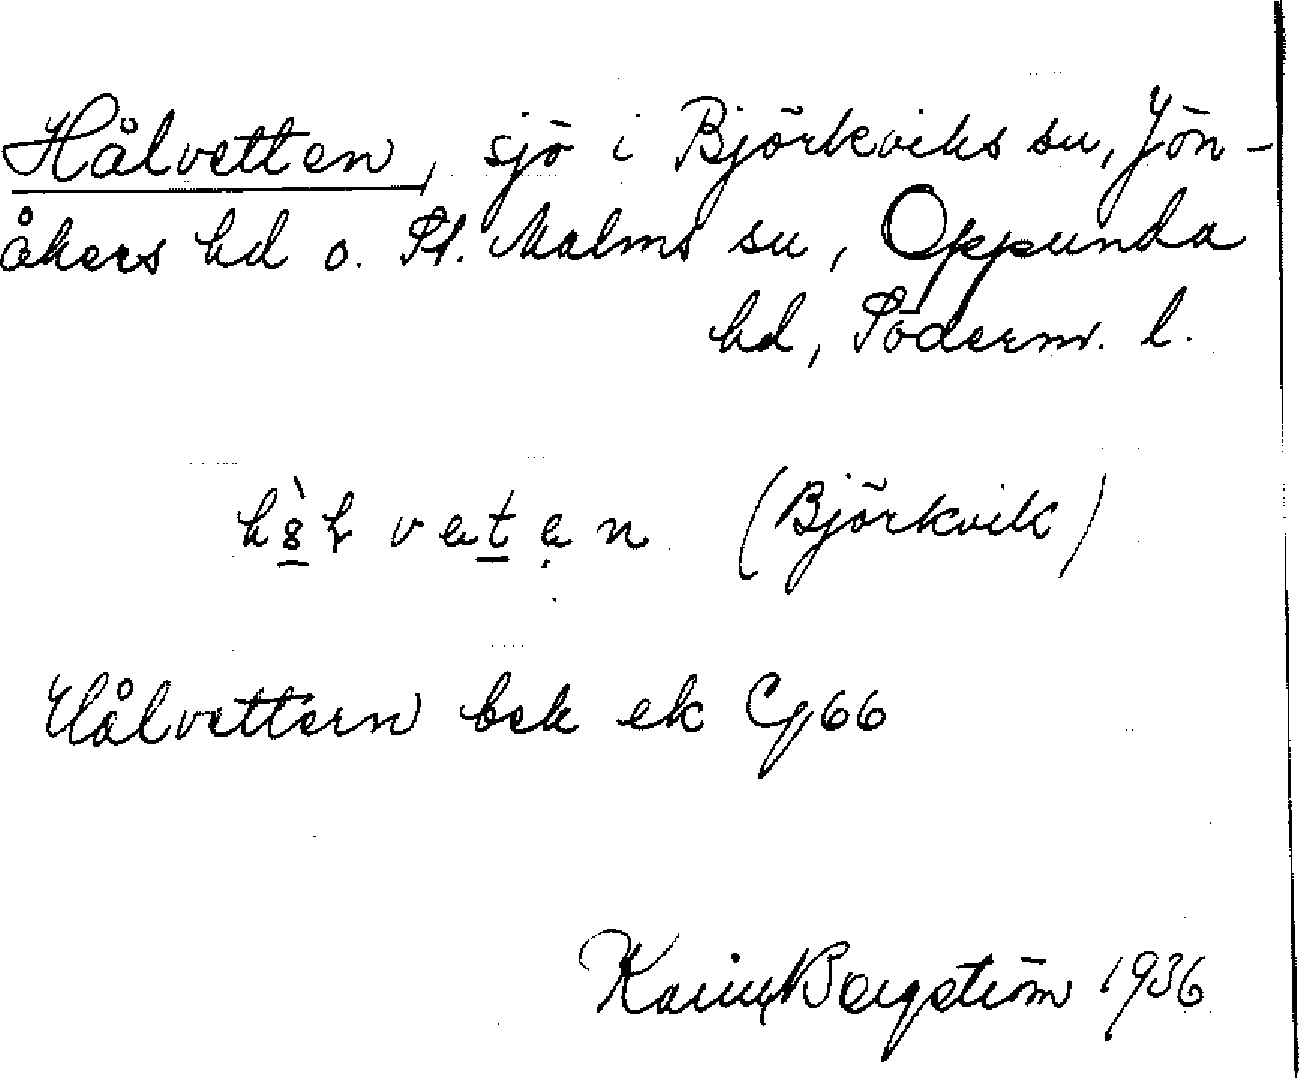 Hålvetten, sjö i Björkviks sn, Jön-
åkers hd o. St. Malms sn, Oppunda
hd, Söderm. l.
(Björkvik)
Hålvettern bek ek Cg 66
Karin Bergström 1936